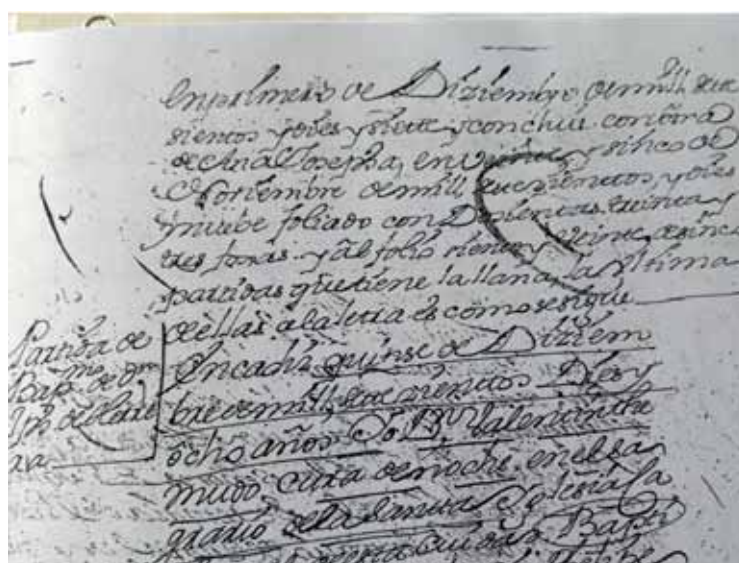 en primero de Diziembre de mill sete
sientos y dies y siete y concluie con otra
de Ana Josepha, en veinte y sinco de
Noviembre de mill sete sientos, y dies
y nuebe foliado con Dosientas treinta y
tres foxas y al folio siento y veinte de sinco
partidas que tiene la llana, la ultima
de ellas a la letra es como se sigue
Partida de
Bap.mo de Dn
Jph de
En Cadiz quinse de Diziem
bre de mill, sete sientos Dies y
ocho años Yo Dn Valentin
mudo, cura de noche en el sa
grario de la Santa Yglesia Ca
de esta ciudad Bapti